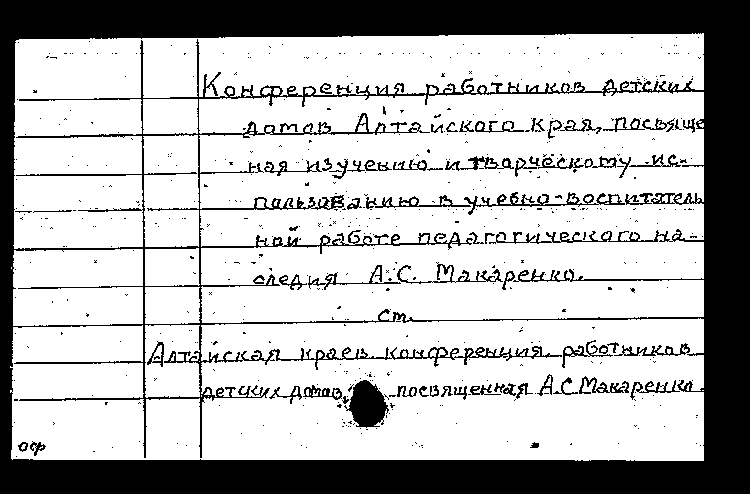 Конференция работников детских
домов Алтайского края, посвяще
ная изучению и творческому ис-
пользованию в учебно-воспитатель
ной работе педагогического на-
следия А.С. Макаренко.
ст.
Алтайская краев. конференция работников
детских домов, посвященная А.С Макаренко.
оф